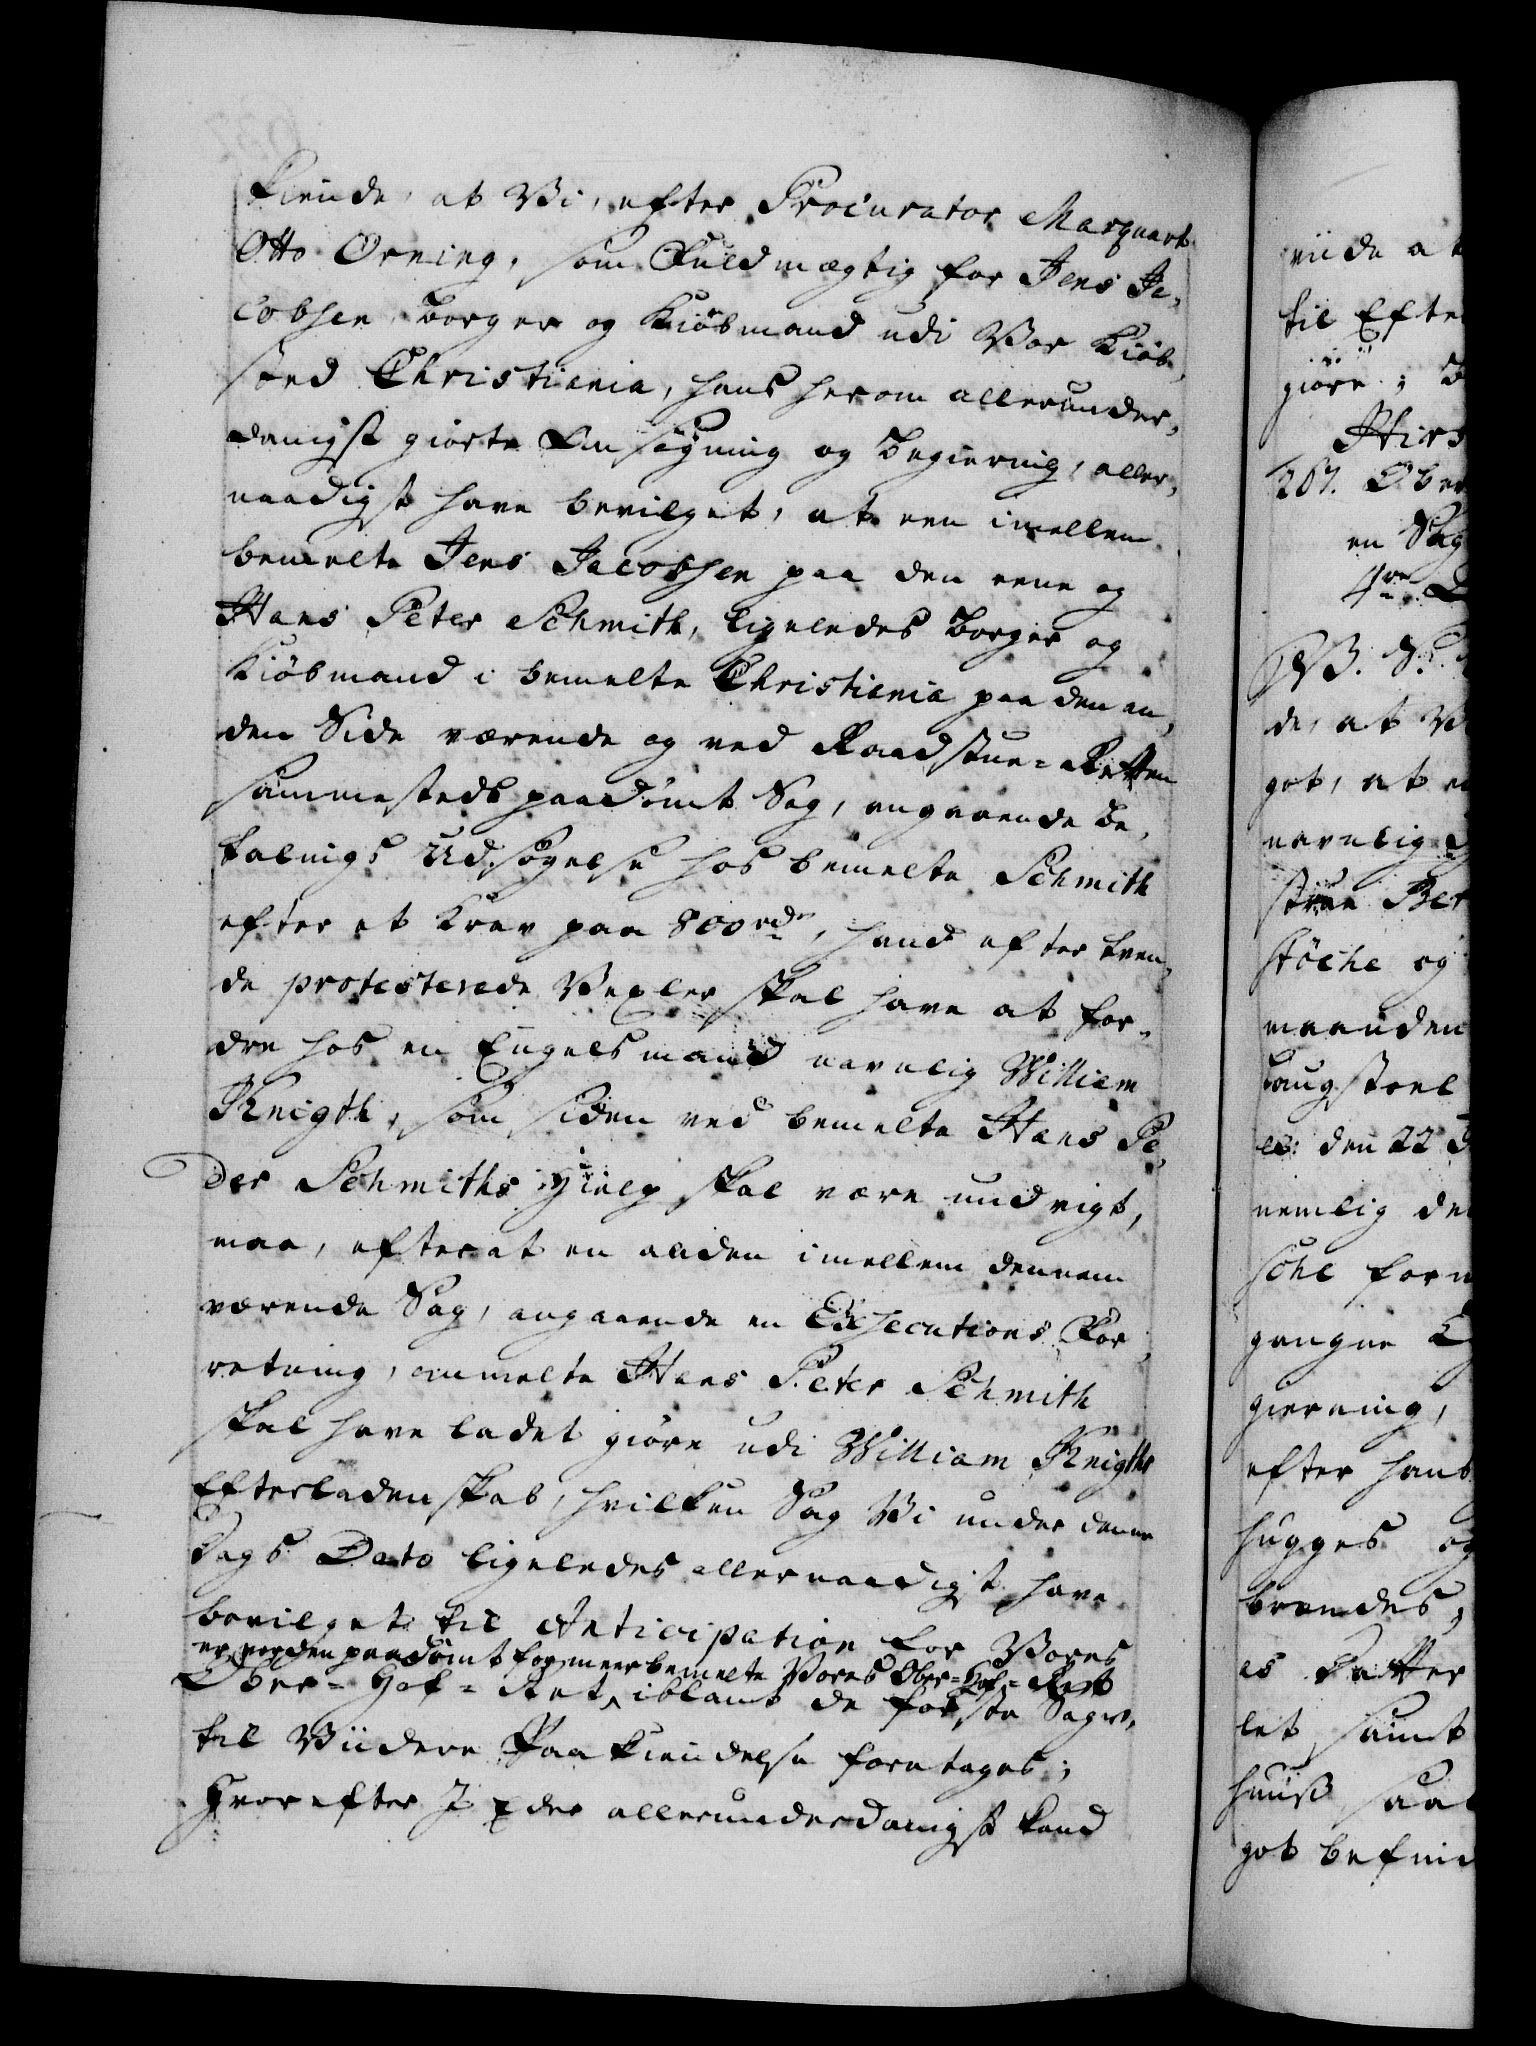 kiende, at Wi, efter Procurator Marquart
Otto Örning, som Fuldmægtig for Jens Ja-
cobsen, borger og Kiöbmand udi Vor Kiöb-
sted Christiania, hans herom allerunder-
danigst giorte Ansögning og begiering, aller-
naadigst have bevilget, at een imellem
bemelte Jens Jacobsen paa den eene og
Hans Peter Schmith, ligeledes Borger og
Kiöbmand i bemelte Christiania paa den an-
den Side værende og ved Raadstue-Retten
sammesteds paadömt Sag, angaaende Be-
talnings Udsögelse hos bemelte Schmith
efter et Krav paa 800 rdr, hand efter tven-
de protesterede Vexler skal have at for-
dre hos en Engelsmand navnlig William
Knigth, som siden ved bemelte Hans Pe-
der Schmiths Hielp skal være undvigt,
maa, efter at en anden imellem dennem
værende Sag, angaaende en Executions For-
retning, ommelte Hans Peter Schmith
skal have ladet giöre udi William Knigths
Efterladenskab, hvilken Sag Wi under denne
Dags Dato ligeledes allernaadigst have
bevilget til Anticipation for Vores
er vorden paadömt for meerbemelte Vores Ober-Hof-Rett
Ober-Hof-Ret, iblant de förste Sager
til Viidere Paakiendelse foretages;
Hvorefter I eder allerunderdanigst kand
viide at
til Efte
giöre; B
Hirs
207. Ober
en Sag
4re
W. S.
de, at W
get, at e
navnlig
strue Ber
stöche og
maanden
Laugstoel
es: den 22 D
nemlig de
söhe form
gangne
giering,
efter hans
hugges og
brændes,
es
let, samt
huus, saa
get befind